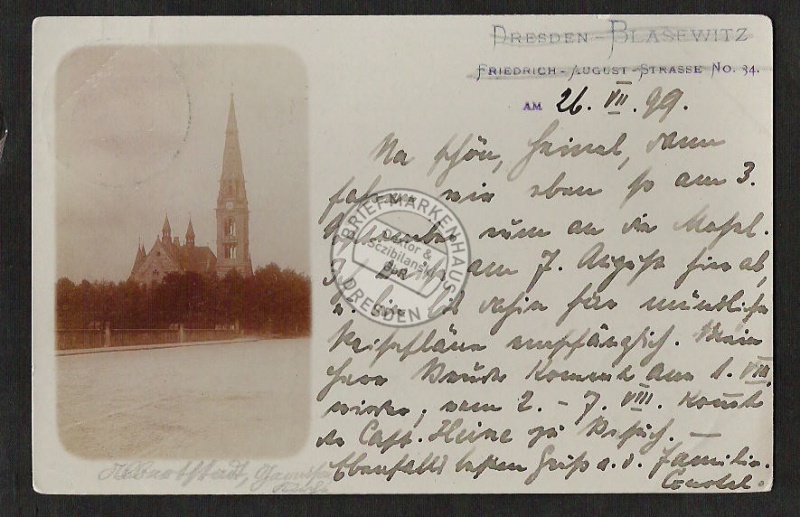 DRESDEN-BLASEWITZ
FRIEDRICH-AUGUST-STRASSE No. 34.
AM 26. VII. 99.
Na schön, Heinel, dann
fahren wir eben so am 3.
September zum an die Mosel.
am 7. August hier ab,
u. bis dahin für mündliche
Reisepläne empfänglich. Mein
Herr Bruder kommt am 1. VIII.
wieder; vom 2. - 7. VIII. kommt
Capt. Heine zu Besuch. -
Ebenfalls besten Gruß a. d. Familie.
BRIEFMARKENHAUS
Doktor &
Sczibilanski
GbR
DRESDEN